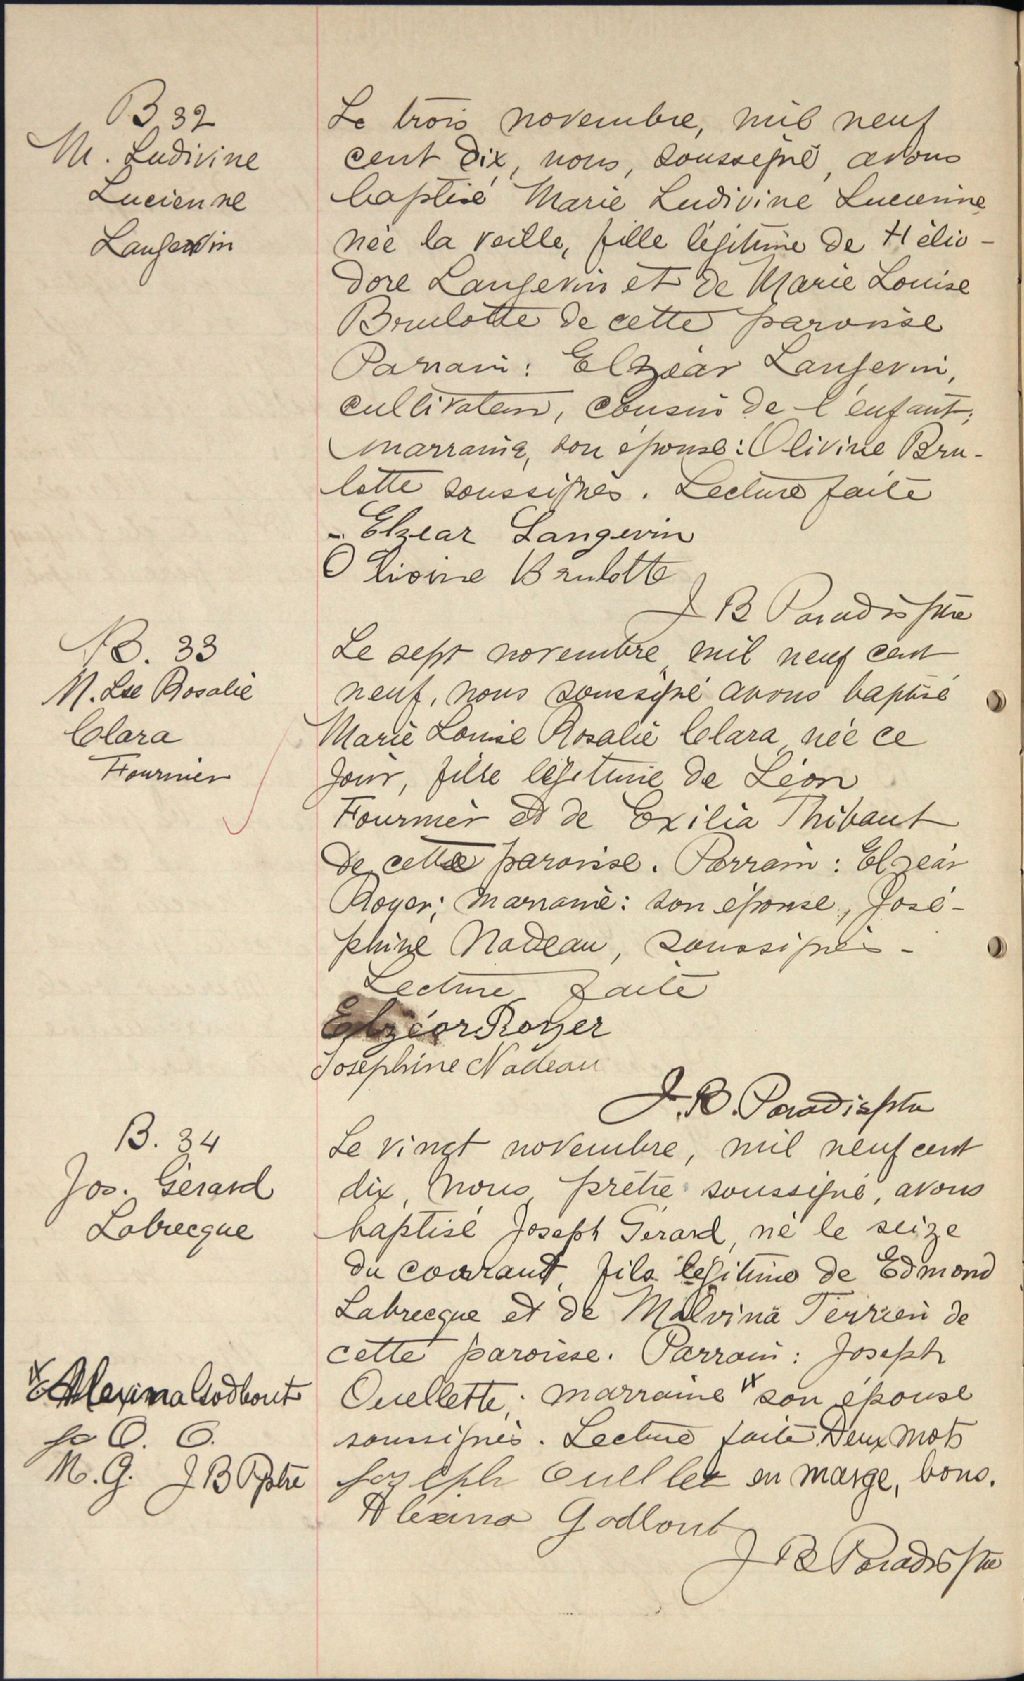 B 32
M. Ludivine
Lucienne
Langevin
Le trois novembre, mil neuf
cent dix, nous, soussigné, avons
baptisé Marie Ludivine Lucienne
née la veille, fille légitime de Hélio-
dore Langevin et de Marie Louise
Brulotte de cette paroisse
Parrain : Elzéar Langevin,
cultivateur, cousin de l'enfant;
marraine, son épouse : Olivine Bru-
lotte soussignés. Lecture faite
- Elzear Langevin
Olivine Brulotte
J B Paradis ptre
B. 33
M. Lse Rosalie
Clara
Fournier
Le sept novembre, mil neuf cent
neuf, nous soussigné avons baptisé
Marie Louise Rosalie Clara, née ce
jour, fille légitime de Léon
Fournier et de Exilia Thibaut
de cette paroisse. Parrain : Elzéar
Royer; marraine : son épouse, José-
phine Nadeau, soussignés -
Lecture faite
Elzéar Royer
Josephine Nadeau
J. B. Paradis ptre
B. 34
Jos. Gérard
Labrecque
Le vingt novembre, mil neuf cent
dix, nous, prêtre soussigné, avons
baptisé Joseph Gérard, né le seize
du courant, fils légitime de Edmond
Labrecque et de Malvina Terrien de
cette paroisse. Parrain : Joseph
Ouellette; marraine son épouse
soussignés. Lecture faite Deux mots
Joseph Ouellet en marge, bons.
Alexina Godbout
J B Paradis ptre
Alexina Godbout
jo O. O.
M. G. J B P ptre